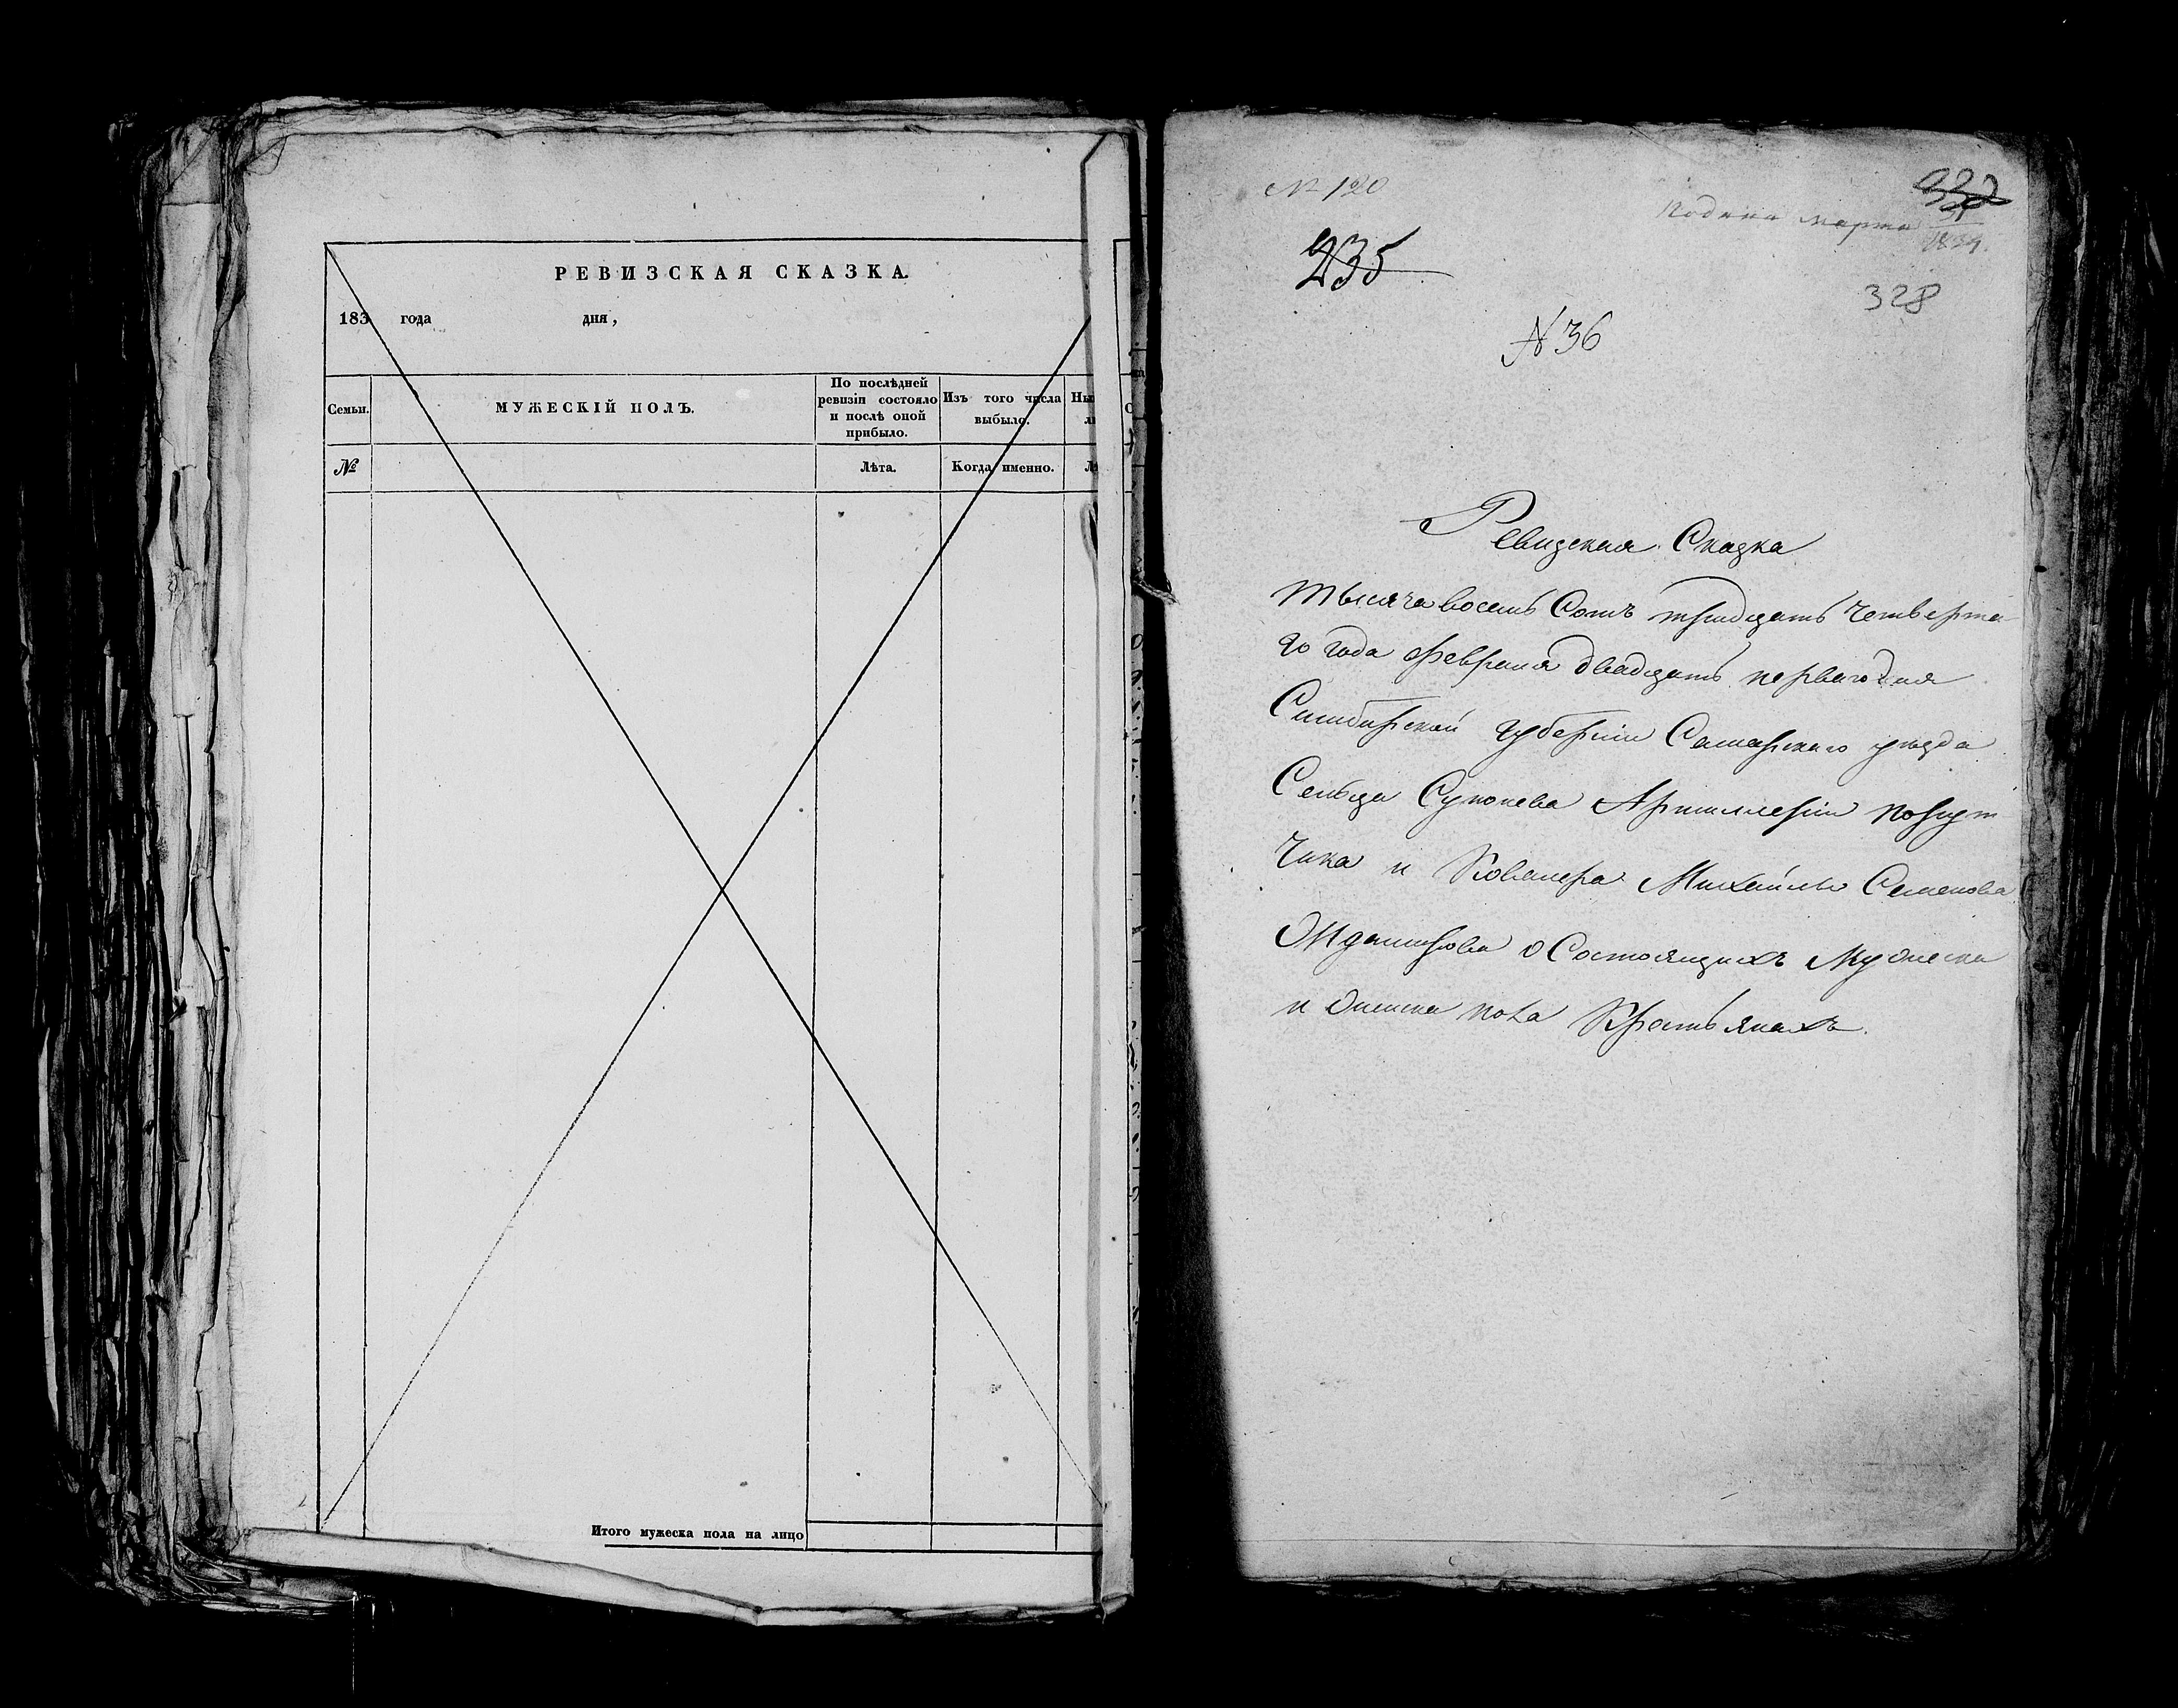 РЕВИЗСКАЯ СКАЗКА.
183 года дня,
Семьи.
МУЖЕСКІЙ ПОЛЪ.
По послѣдней
ревизіи состояло
и послѣ оной
прибыло.
Изъ того числа
выбыло.
№
Лѣта.
Когда именно.
Итого мужеска пола на лицо
№ 120
332
Подана марта
235
328
№ 36
Ревизская Сказка
Тысяча восемь Сотъ тридцать четверта
го года февраля двадцать перваго дня
Симбирской губерніи Самарскаго уѣзда
Сельца Артиллеріи порут
чика и Кавалера Михайлы Семенова
о Состоящихъ Мужеска
и женска пола Крестьянахъ.